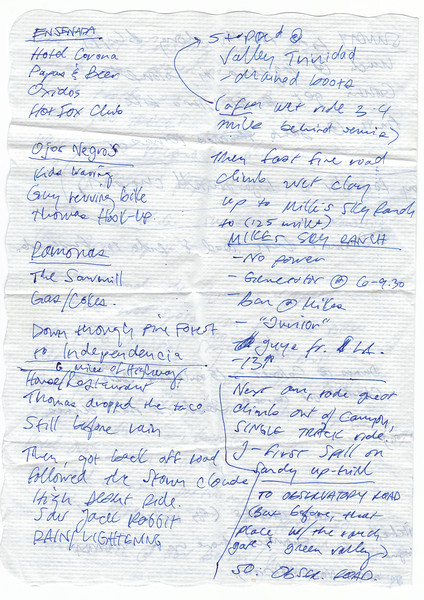 ENSENADA
Hotel Corona
Papas & Beer
Oxidos
Hot Fox Club
Ojos Negros
Kids waving
Guy revving bike
Thomas Hook-up.
Ramonas
The Sawmill
Gas/Cokes.
Down through Pine Forest
to Independencia
6 miles of Highway.
House/Restaurant
Thomas dropped the taco
Still before rain
Then, got back off road
followed the storm clouds
High desert ride.
Saw Jack Rabbit
RAIN/LIGHTENING
Stopped @
Valley Trinidad
- drained boots
(after wet ride 3-4
mile behind semis)
Then fast fire road
climb wet clay
up to Mike's Sky Ranch
to (125 miles)
MIKE'S SKY RANCH
- No power
- Generator @ 6-9.30
- Bar @ Mikes
- "Junior"
guys fr. LA.
Next am, rode great
climb out of Canyon,
SINGLE TRACK ride.
J - first spill on
sandy up-hill
TO OBSERVATORY ROAD
(But before, that
place w/ the ranch
gate & green valley)
SO: OBSER. ROAD.